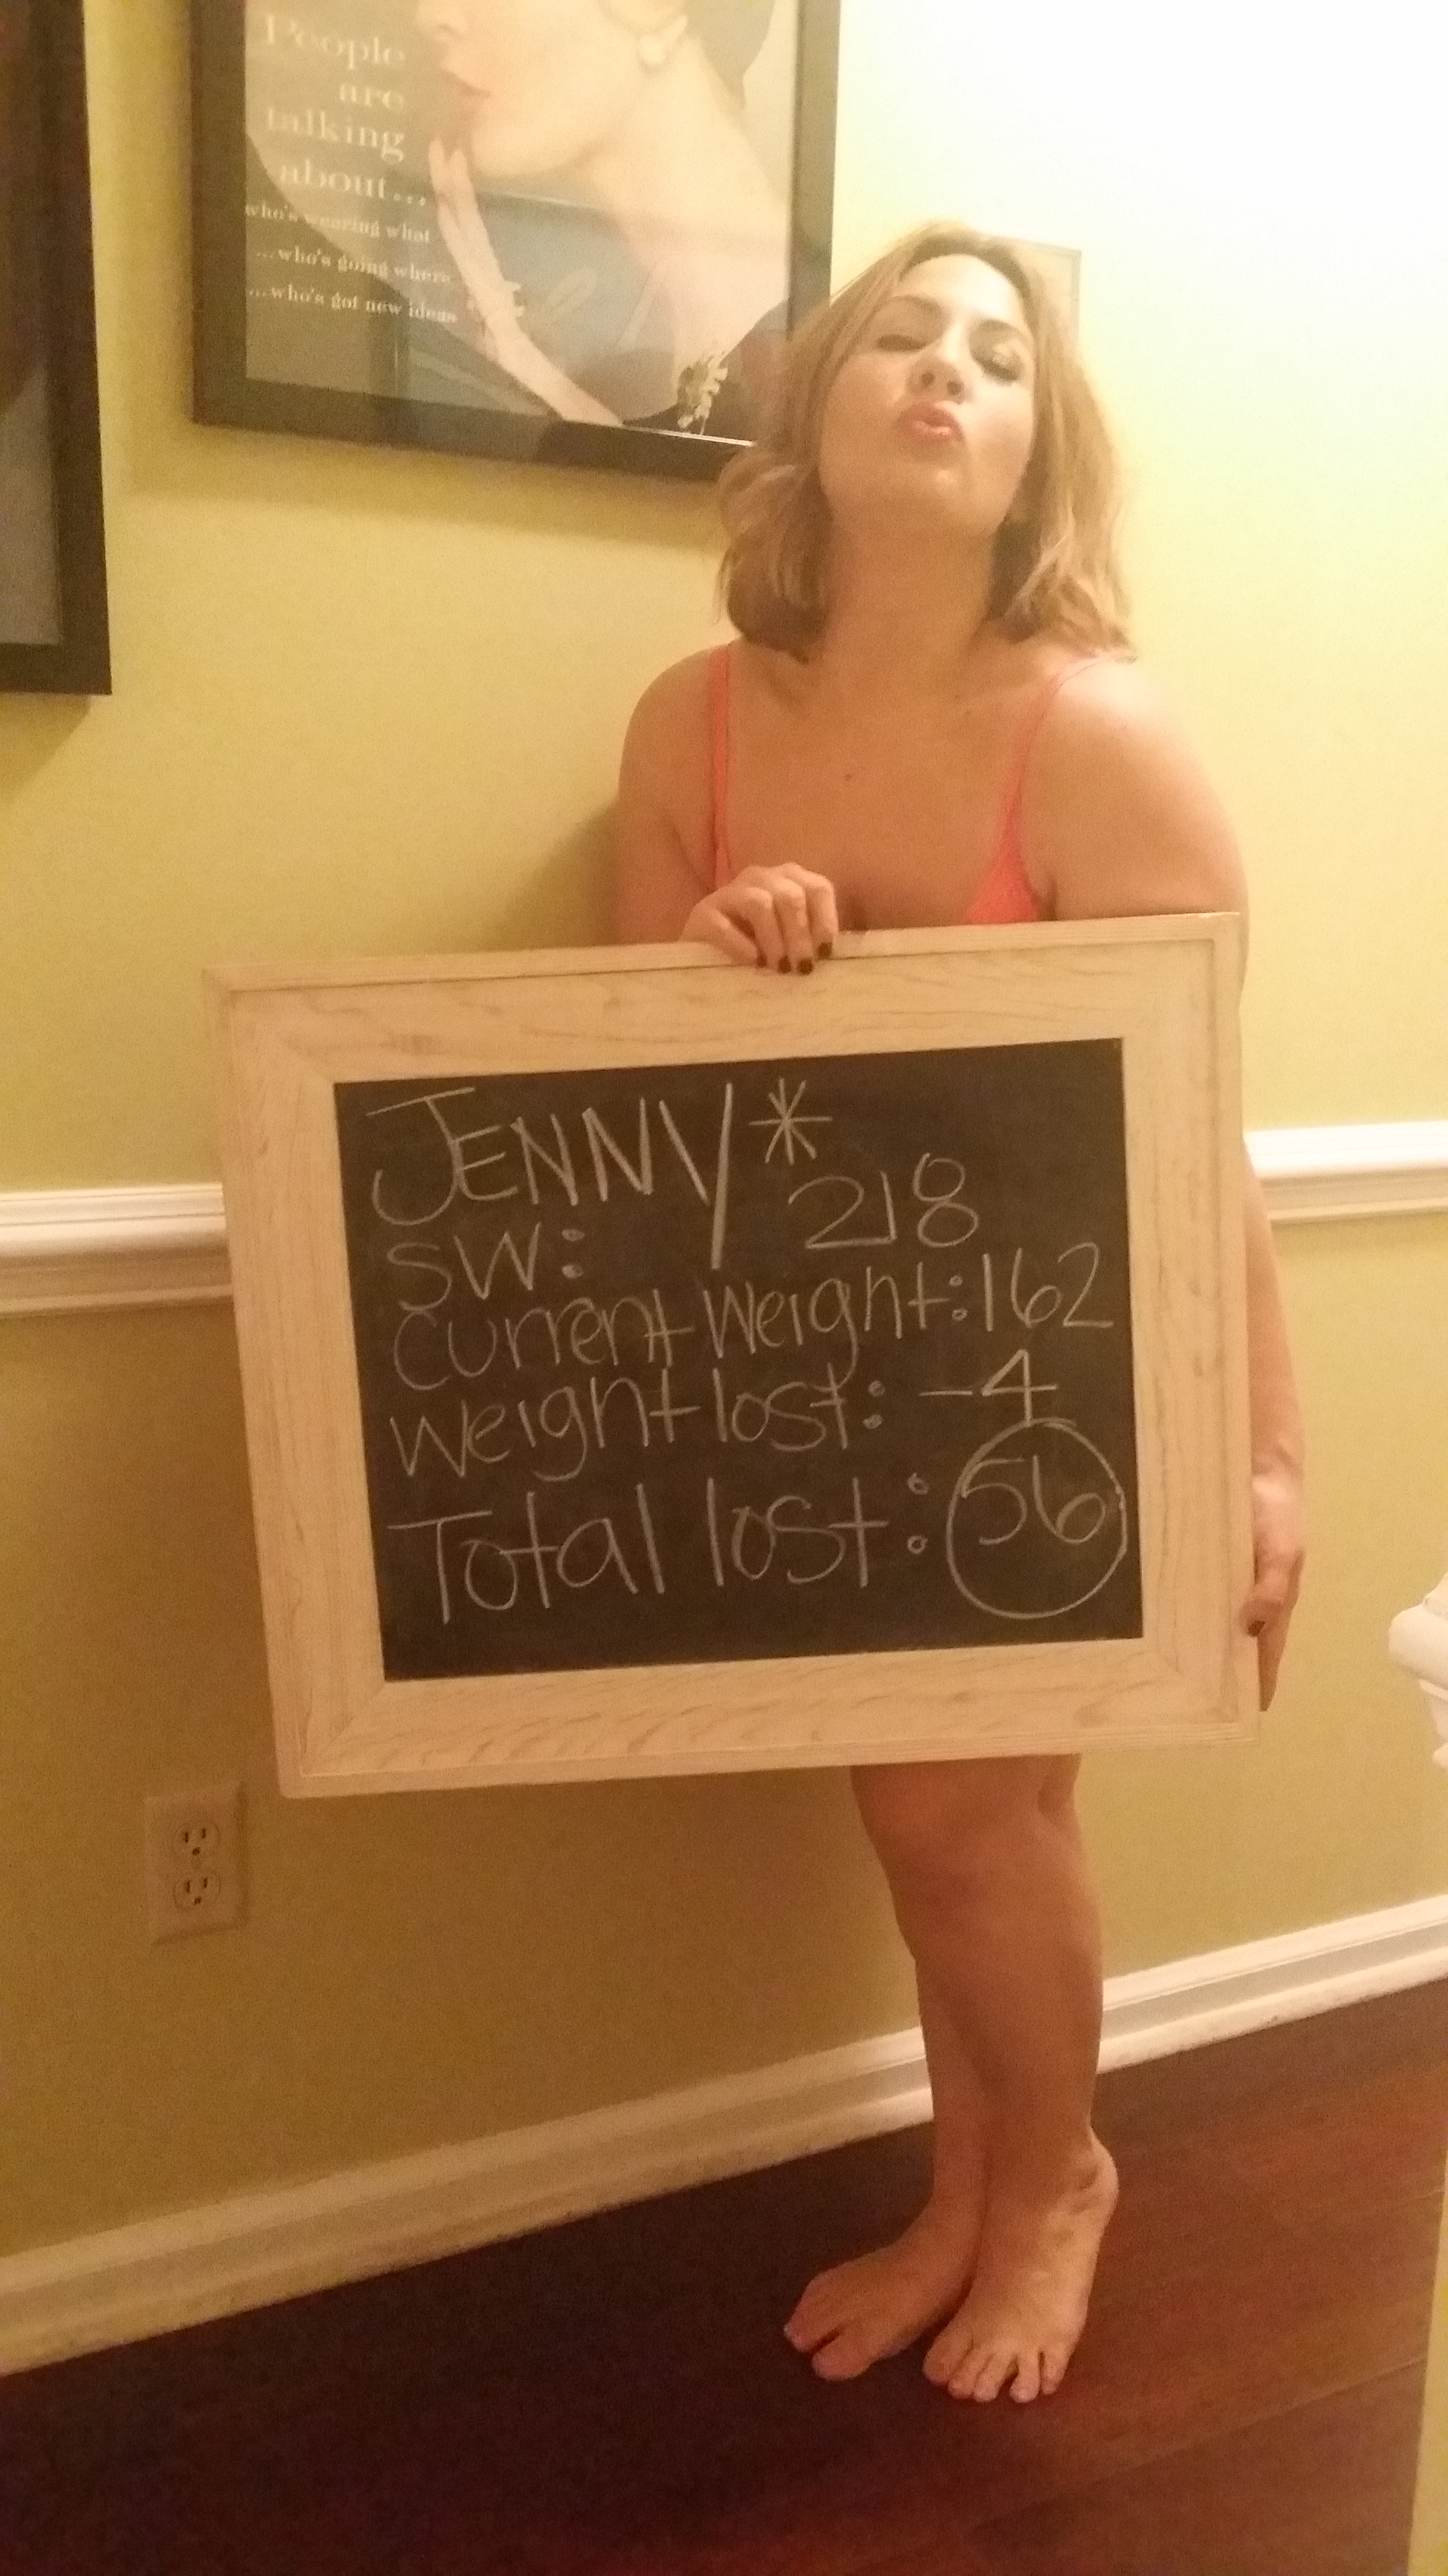 People
are
talking
about...
who's wearing what
...who's going where
...who's got new ideas
JENNY*
SW: 218
Current Weight: 162
Weight lost: -4
Total lost: 56